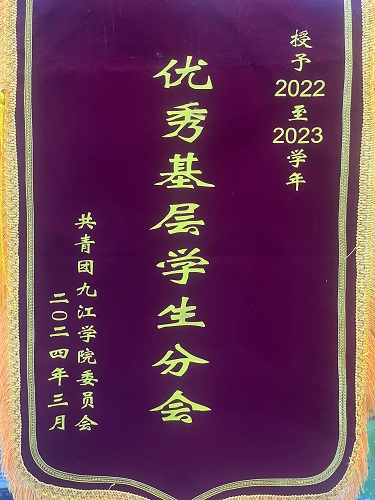 授予2022至2023学年
优秀基层学生分会
共青团九江学院委员会
二〇二四年三月